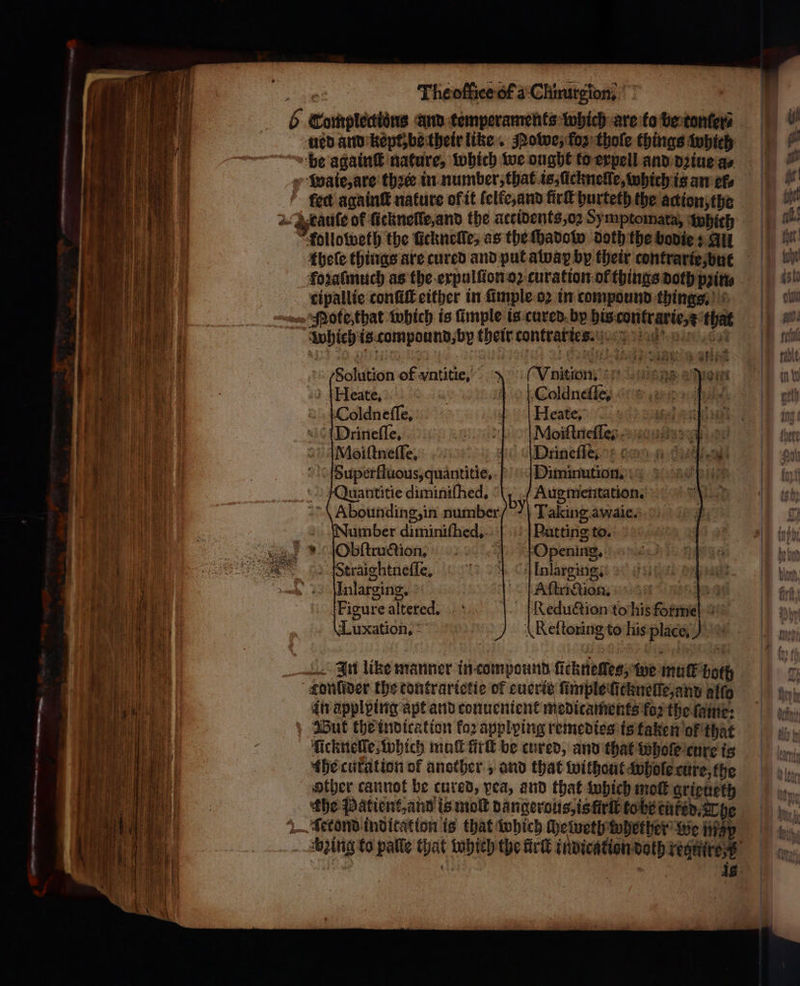 The office of a Chirurgion,
6 Complections and temperaments which are to be conser-
ued and kept, be their like. Nowe, for those things which
be against nature, which we ought to expell and driue a-
waie, are thrée in number, that is, sicknesse, which is an ef-
fect against nature of it selfe, and first hurteth the action, the
2 cause of sicknesse, and the accidents, or Symptomata, which
followeth the sicknesse, as the shadow doth the bodie: All
these things are cured and put alway by their contrarie, but
forasmuch as the expulsion or curation of things doth prin-
cipallie consist either in simple or in compound things.
Note, that which is simple is cured by his contrarie, & that
which is compound, by their contraries.
Solution of vntitie,
Heate,
Coldnesse,
Drinesse,
Moistnesse,
Superfluous, quantitie,
Quantitie diminished,
Abounding, in number
Number diminished,
Obstruction,
Straightnesse,
Inlarging.
Figure altered.
Luxation,
by
Vnition,
Coldnesse,
Heate,
Moistnesse,
Drinesse,
Diminution,
Augmentation.
Taking awaie.
Putting to.
Opening,
Inlarging,
Astriction,
Reduction to his forme
Restoring to his place,
In like manner in compound sicknesses, we must both
consider the contrarietie of euerie simple sicknesse, and also
in applying apt and conuenient medicaments for the same:
But the indication for applying remedies is taken of that
sicknesse, which must first be cured, and that whose cure is
the curation of another, and that without whose cure, the
other cannot be cured, yea, and that which most grieueth
the Patient, and is most dangerous, is first to be cured. The
second indication is that which sheweth whether we may
bring to passe that which the first indication doth require, &
is